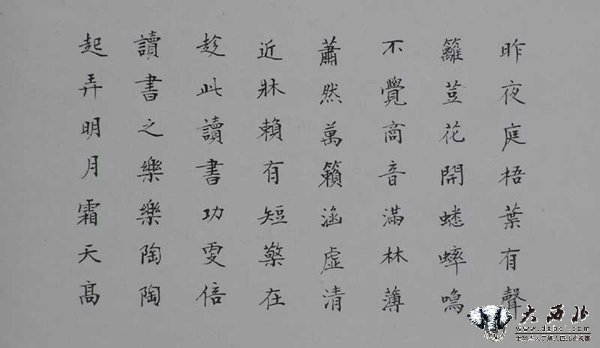 昨夜庭梧葉有聲
籬荳花開蟋蟀鳴
不覺商音滿林薄
蕭然萬籟涵虛清
近牀賴有短檠在
趂此讀書功更倍
讀書之樂樂陶陶
起弄明月霜天髙
大西北